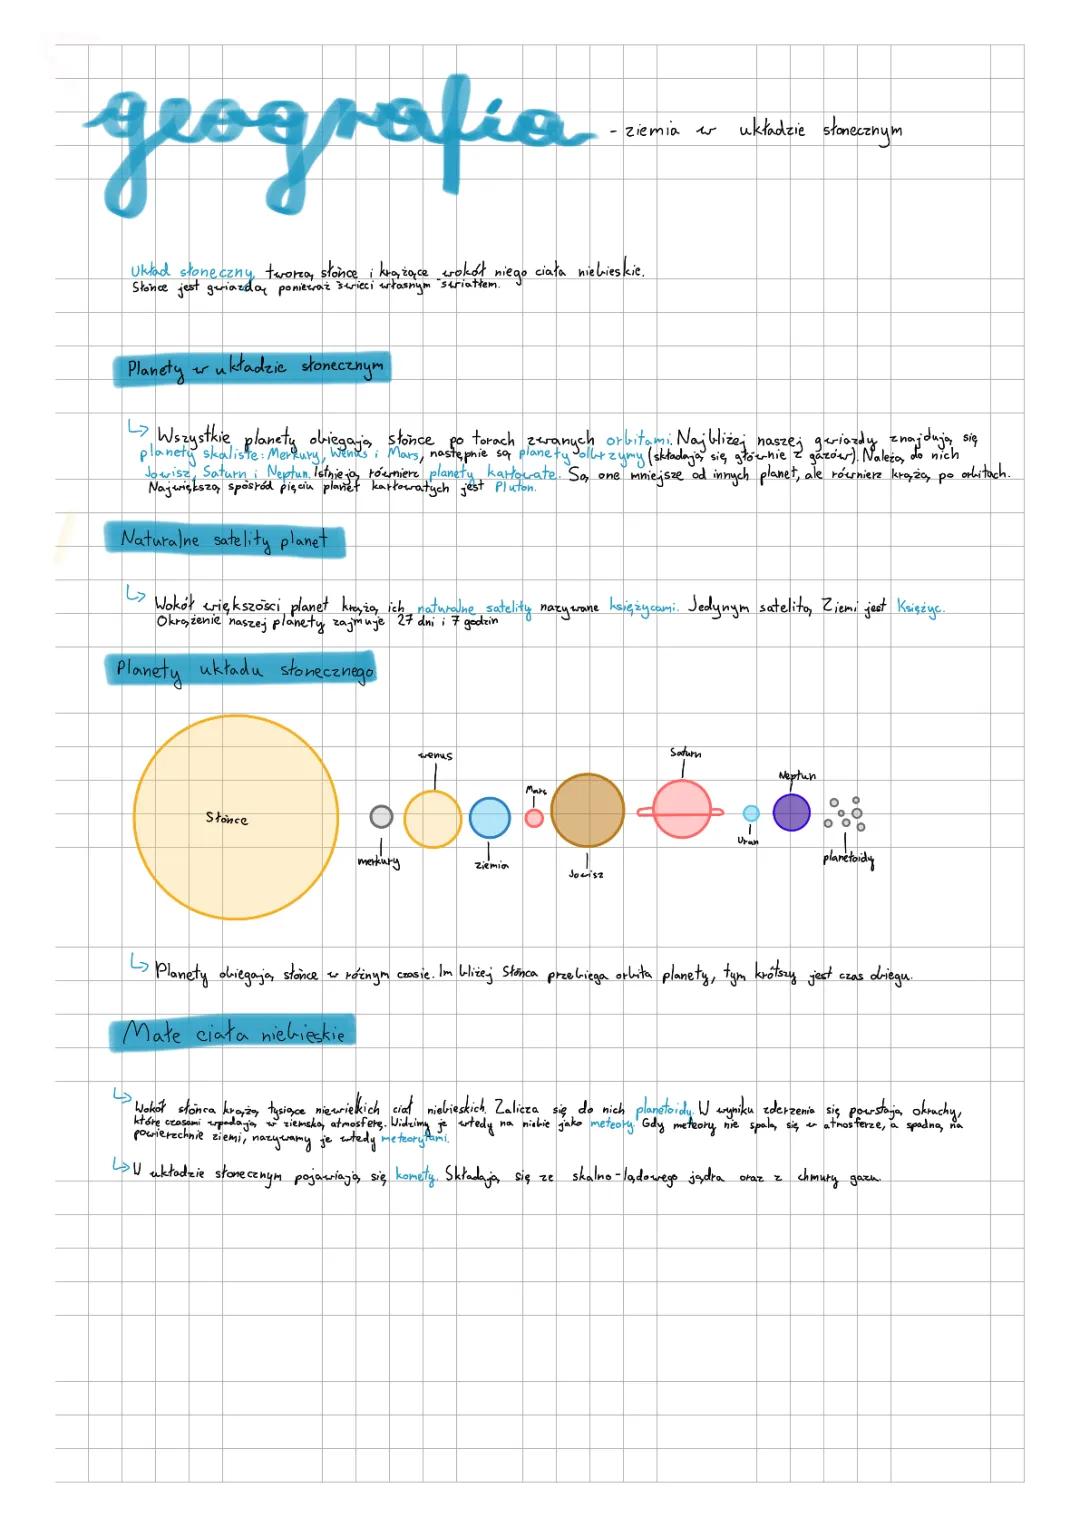 geografia - ziemia w układzie słonecznym
Układ słoneczny tworzą słońce i krążące wokół niego ciała niebieskie.
Słońce jest gwiazdą ponieważ świeci własnym światłem.
Planety w układzie słonecznym
↳ Wszystkie planety obiegają słońce po torach zwanych orbitami. Najbliżej naszej gwiazdy znajdują się
planety skaliste: Merkury, Wenus i Mars, następnie są planety olbrzymy (składają się głównie z gazów). Należą do nich
Jowisz, Saturn i Neptun. Istnieją równierz planety karłowate. Są one mniejsze od innych planet, ale równierz krążą po orbitach.
Największą spośród pięciu planet karłowatych jest Pluton.
Naturalne satelity planet
↳ Wokół większości planet krążą ich naturalne satelity nazywane księżycami. Jedynym satelitą Ziemi jest Księżyc.
Okrążenie naszej planety zajmuje 27 dni i 7 godzin
Planety układu słonecznego
Słońce
merkury
wenus
ziemia
Mars
Jowisz
Saturn
Uran
Neptun
planetoidy
↳ Planety obiegają słońce w różnym czasie. Im bliżej Słońca przebiega orbita planety, tym krótszy jest czas obiegu.
Małe ciała niebieskie
↳ Wokół słońca krążą tysiące niewielkich ciał niebieskich. Zalicza się do nich planetoidy. W wyniku zderzenia się powstają okruchy,
które czasami wpadają w ziemską atmosferę. Widzimy je wtedy na niebie jako meteory. Gdy meteory nie spalą się w atmosferze, a spadną na
powierzchnie ziemi, nazywamy je wtedy meteorytami.
↳ W układzie słonecznym pojawiają się komety. Składają się ze skalno-lądowego jądra oraz z chmury gazu.